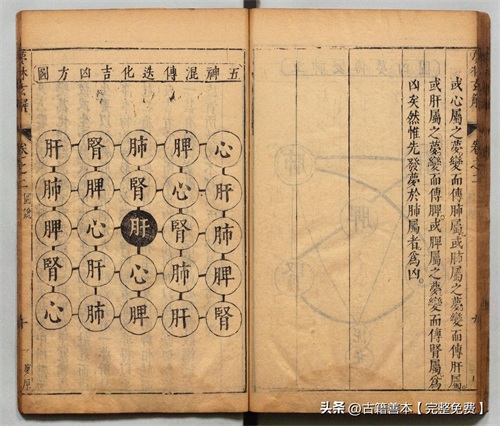 或心屬之夢變而傳肺屬或肺屬之夢變而傳肝屬
或肝屬之夢變而傳脾或脾屬之夢變而傳腎屬爲
凶矣然惟先發夢於肺屬者爲凶
五神混傳迭化吉凶方圖
心脾肺腎肝
肝心腎脾肺
肺腎肝心脾
脾肺心肝腎
腎肝脾肺心
夢林玄解
卷之二
头条 @古籍善本【完整免费】